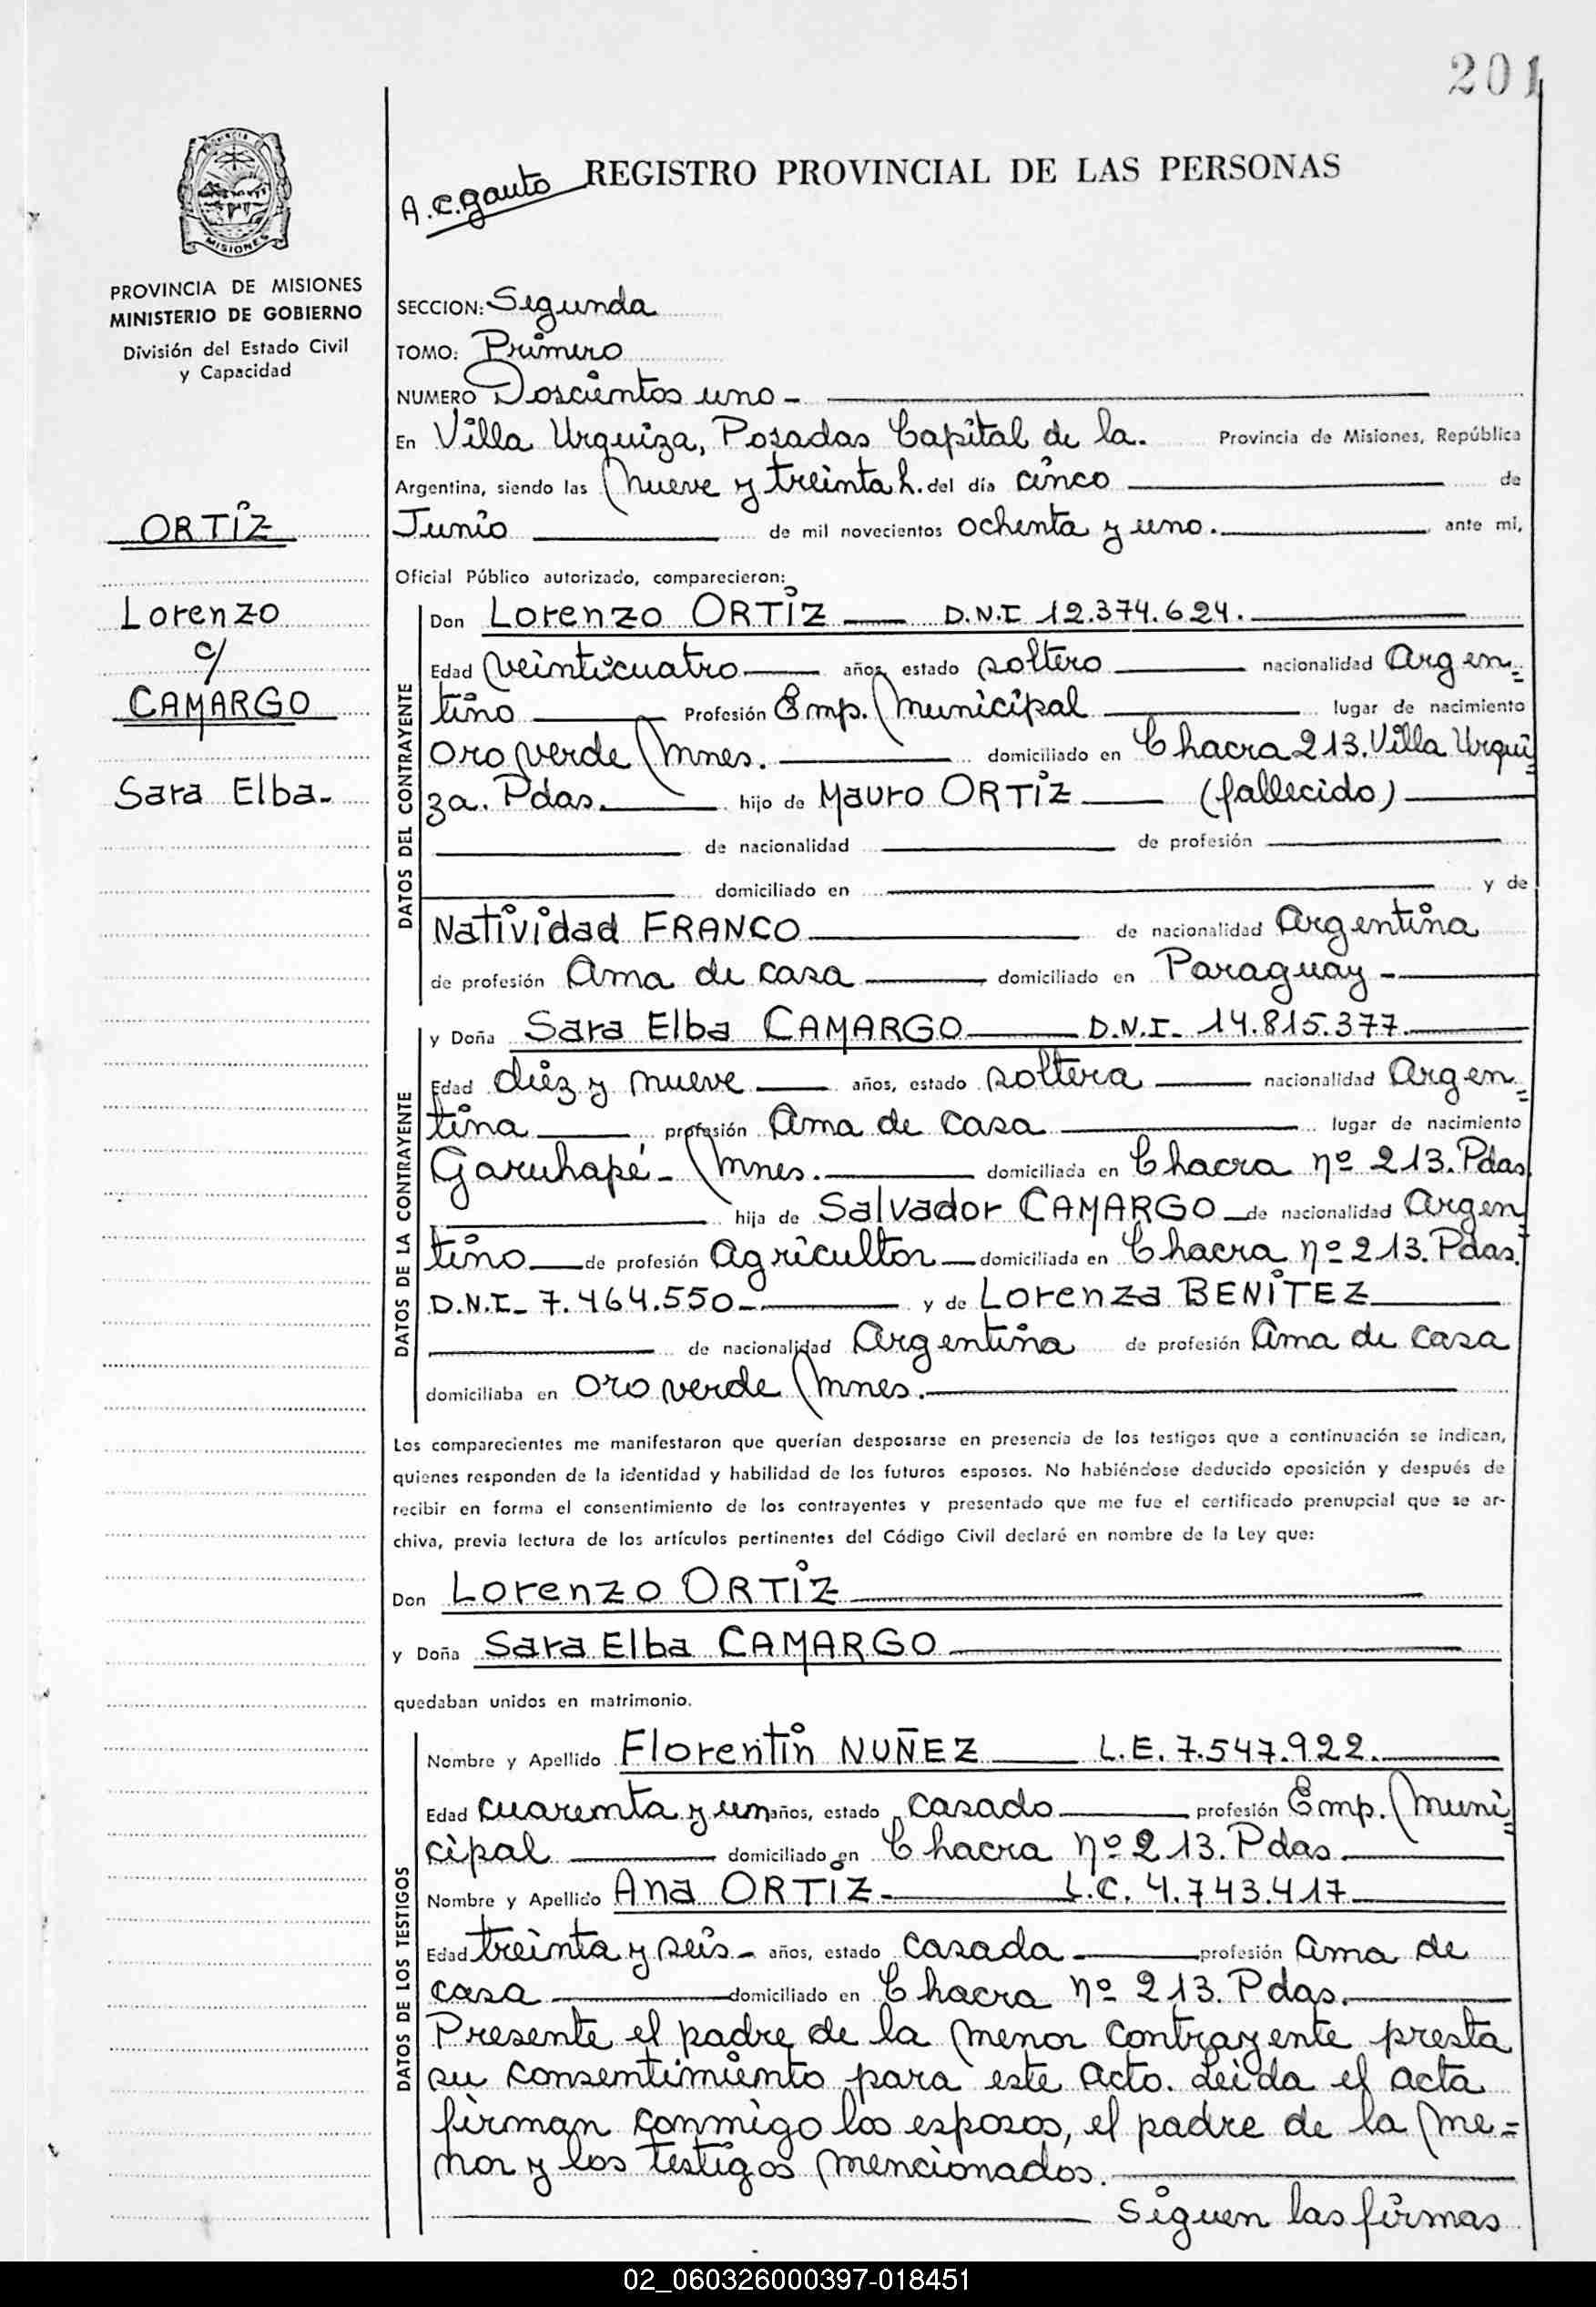 201
PROVINCIA
MISIONES
PROVINCIA DE MISIONES
MINISTERIO DE GOBIERNO
División del Estado Civil
y Capacidad
ORTIZ
Lorenzo
c/
CAMARGO
Sara Elba-
A.C. Gauto
REGISTRO PROVINCIAL DE LAS PERSONAS
SECCION: Segunda
TOMO: Primero
NUMERO Doscientos uno -
En Villa Urquiza, Posadas Capital de la. Provincia de Misiones, República
Argentina, siendo las nueve y treinta h. del día cinco de
Junio de mil novecientos ochenta y uno. ante mi,
Oficial Público autorizado, comparecieron:
DATOS DEL CONTRAYENTE
Don Lorenzo ORTIZ D.N.I 12.374.624.
Edad veinticuatro años, estado soltero nacionalidad Argen=
tino Profesión Emp. Municipal lugar de nacimiento
Oro verde Mnes. domiciliado en Chacra 213. Villa Urqui=
za. Pdas. hijo de Mauro ORTIZ (fallecido)
de nacionalidad de profesión
domiciliado en y de
Natividad FRANCO de nacionalidad Argentina
de profesión Ama de casa domiciliado en Paraguay -
DATOS DE LA CONTRAYENTE
y Doña Sara Elba CAMARGO D.N.I- 14.815.377
Edad diez y nueve años, estado soltera nacionalidad Argen=
tina profesión Ama de casa lugar de nacimiento
Garuhapé- Mnes. domiciliada en Chacra nº 213. Pdas
. hija de Salvador CAMARGO de nacionalidad Argen=
tino de profesión Agricultor domiciliada en Chacra nº 213. Pdas.
D.N.I- 7.464.550- y de Lorenza BENITEZ
de nacionalidad Argentina de profesión Ama de casa
domiciliaba en Oro verde Mnes.
Los comparecientes me manifestaron que querían desposarse en presencia de los testigos que a continuación se indican,
quienes responden de la identidad y habilidad de los futuros esposos. No habiéndose deducido oposición y después de
recibir en forma el consentimiento de los contrayentes y presentado que me fue el certificado prenupcial que se ar-
chiva, previa lectura de los artículos pertinentes del Código Civil declaré en nombre de la Ley que:
Don Lorenzo ORTIZ
y Doña Sara Elba CAMARGO
quedaban unidos en matrimonio.
DATOS DE LOS TESTIGOS
Nombre y Apellido Florentin NUÑEZ L.E. 7.547.922.
Edad cuarenta y un años, estado casado profesión Emp. Muni=
cipal domiciliado en Chacra nº 213. Pdas.
Nombre y Apellido Ana ORTIZ- L.C. 4.743.417
Edad treinta y seis- años, estado casada profesión Ama de
casa domiciliado en Chacra nº 213. Pdas.
Presente el padre de la menor contrayente presta
su consentimiento para este acto. Leida el acta
firman conmigo los esposos, el padre de la me=
nor y los testigos mencionados.
Siguen las firmas
02_060326000397-018451